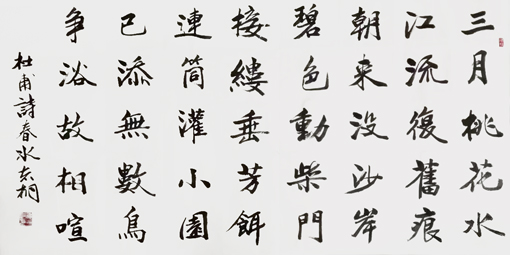 三月桃花水
江流復舊痕
朝来没沙岸
碧色動柴門
接縷垂芳餌
連筒灌小園
已添無數鳥
争浴故相喧
杜甫詩春水